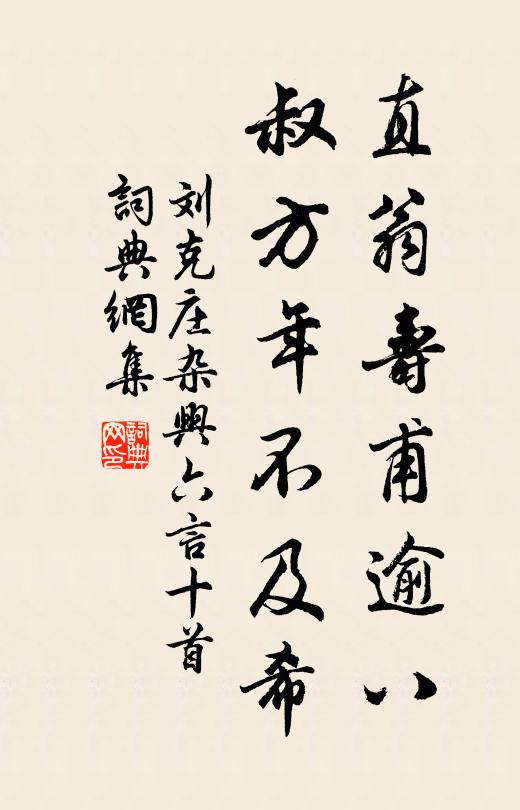 直翁壽甫逾八
叔方年不及希
刘克庄杂興六言十首
詞典網集
詞典網印